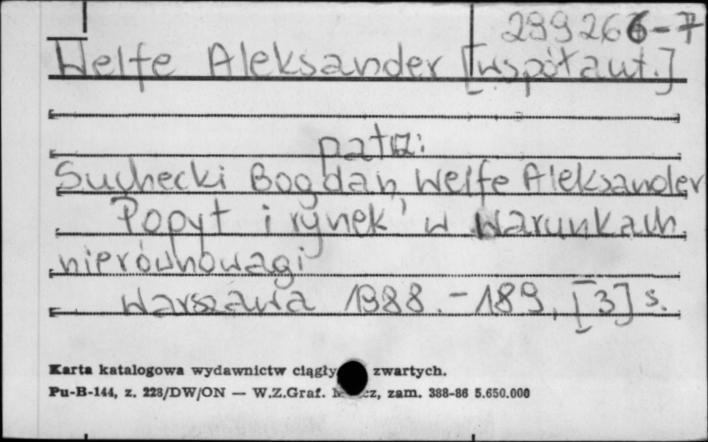 299266-7
Welfe Aleksander [współaut.]
patrz:
Suchecki Bogdan, Welfe Aleksander
Popyt i rynek w warunkach
nierównowagi
Warszawa 1988. - 189, [3] s.
Karta katalogowa wydawnictw ciągły zwartych.
Pu-B-144, z. 228/DW/ON — W.Z.Graf. zam. 388-86 5.650.000